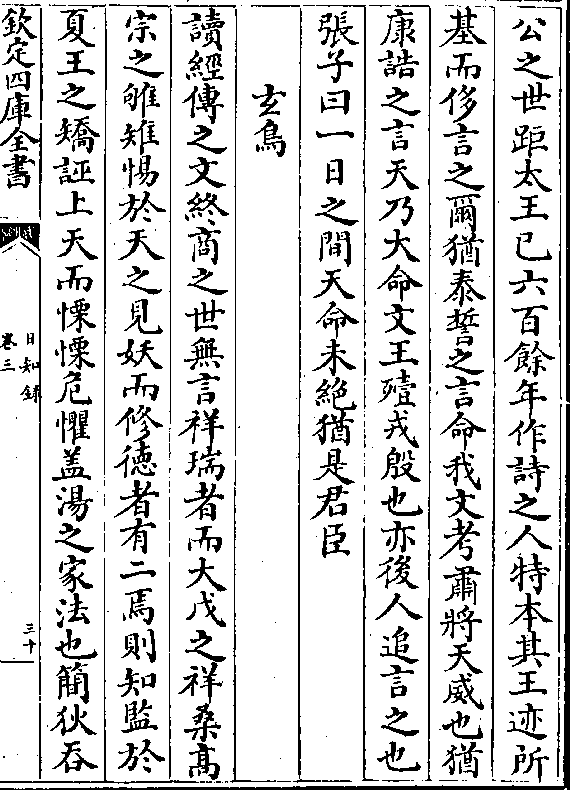 公之世距太王已六百餘年作詩之人特本其王迹所
基而侈言之爾猶泰誓之言命我文考肅將天威也猶
康誥之言天乃大命文王殪戎殷也亦後人追言之也
張子曰一日之間天命未絶猶是君臣
玄鳥
讀經傳之文終商之世無言祥瑞者而大戊之祥桑髙
宗之雊雉惕於天之見妖而修德者有二焉則知監於
夏王之矯誣上天而慄慄危懼盖湯之家法也簡狄吞
欽定四庫全書
日知錄
卷三
三十